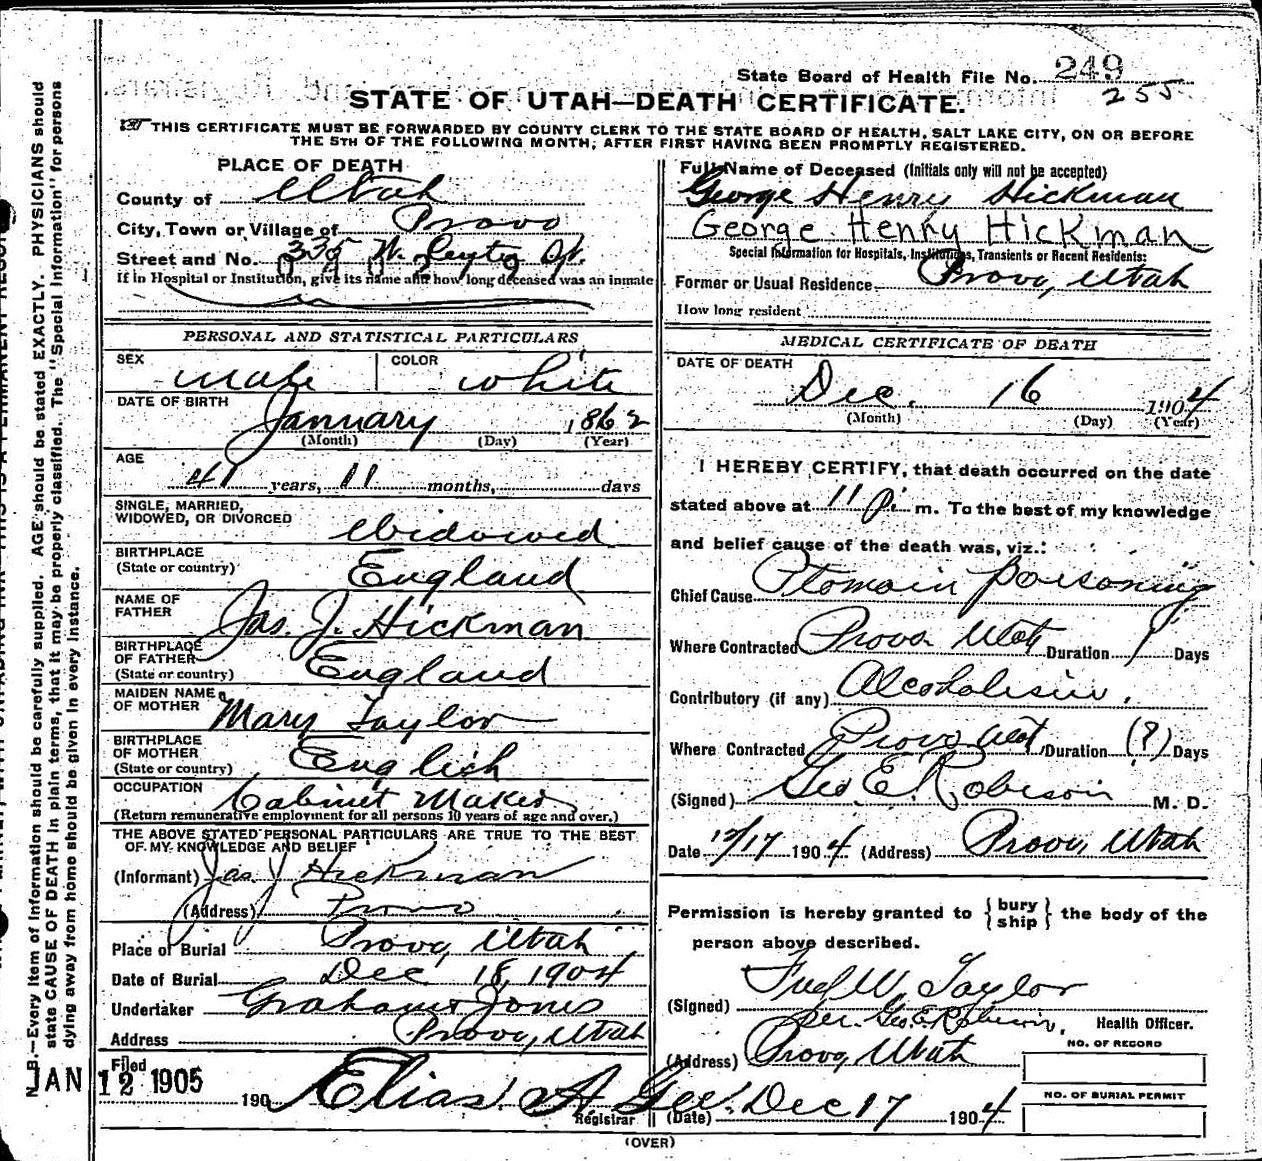 State Board of Health File No. 249
255
STATE OF UTAH—DEATH CERTIFICATE.
THIS CERTIFICATE MUST BE FORWARDED BY COUNTY CLERK TO THE STATE BOARD OF HEALTH, SALT LAKE CITY, ON OR BEFORE
THE 5TH OF THE FOLLOWING MONTH; AFTER FIRST HAVING BEEN PROMPTLY REGISTERED.
PLACE OF DEATH
County of Utah
City, Town or Village of Provo
Street and No. 335 W. St.
If in Hospital or Institution, give its name and how long deceased was an inmate
PERSONAL AND STATISTICAL PARTICULARS
SEX male COLOR white
DATE OF BIRTH January 1862
(Month) (Day) (Year)
AGE 41 years, 11 months, days
SINGLE, MARRIED,
WIDOWED, OR DIVORCED Widowed
BIRTHPLACE
(State or country) England
NAME OF
FATHER Jas. J. Hickman
BIRTHPLACE
OF FATHER
(State or country) England
MAIDEN NAME
OF MOTHER Mary Taylor
BIRTHPLACE
OF MOTHER
(State or country) English
OCCUPATION Cabinet Maker
(Return remunerative employment for all persons 10 years of age and over.)
THE ABOVE STATED PERSONAL PARTICULARS ARE TRUE TO THE BEST
OF MY KNOWLEDGE AND BELIEF
(Informant) Jas J Hickman
(Address) Provo
Place of Burial Provo, Utah
Date of Burial Dec 18, 1904
Undertaker Graham & Jones
Address Provo, Utah
Filed
JAN 12 1905
190 Elias A Gee.
Registrar
Full Name of Deceased (Initials only will not be accepted)
George Henry Hickman
George Henry Hickman
Special Information for Hospitals, Institutions, Transients or Recent Residents:
Former or Usual Residence Provo, Utah
How long resident
MEDICAL CERTIFICATE OF DEATH
DATE OF DEATH
Dec. 16 1904
(Month) (Day) (Year)
I HEREBY CERTIFY, that death occurred on the date
stated above at 11 P. m. To the best of my knowledge
and belief cause of the death was, viz.:
Chief Cause Ptomain poisoning
Where Contracted Provo Utah Duration 1 Days
Contributory (if any) Alcoholism.
Where Contracted Provo Utah Duration (?) Days
(Signed) Geo E. Robison M. D.
Date 12/17 1904 (Address) Provo, Utah
Permission is hereby granted to { bury ship } the body of the
person above described.
(Signed) Fred W. Taylor
per. Geo. E. Robison, Health Officer.
(Address) Provo, Utah
NO. OF RECORD
NO. OF BURIAL PERMIT
(Date) Dec 17 1904
(OVER)
N. B.—Every item of information should be carefully supplied. AGE should be stated EXACTLY. PHYSICIANS should
state CAUSE OF DEATH in plain terms, that it may be properly classified. The "Special Information" for persons
dying away from home should be given in every instance.